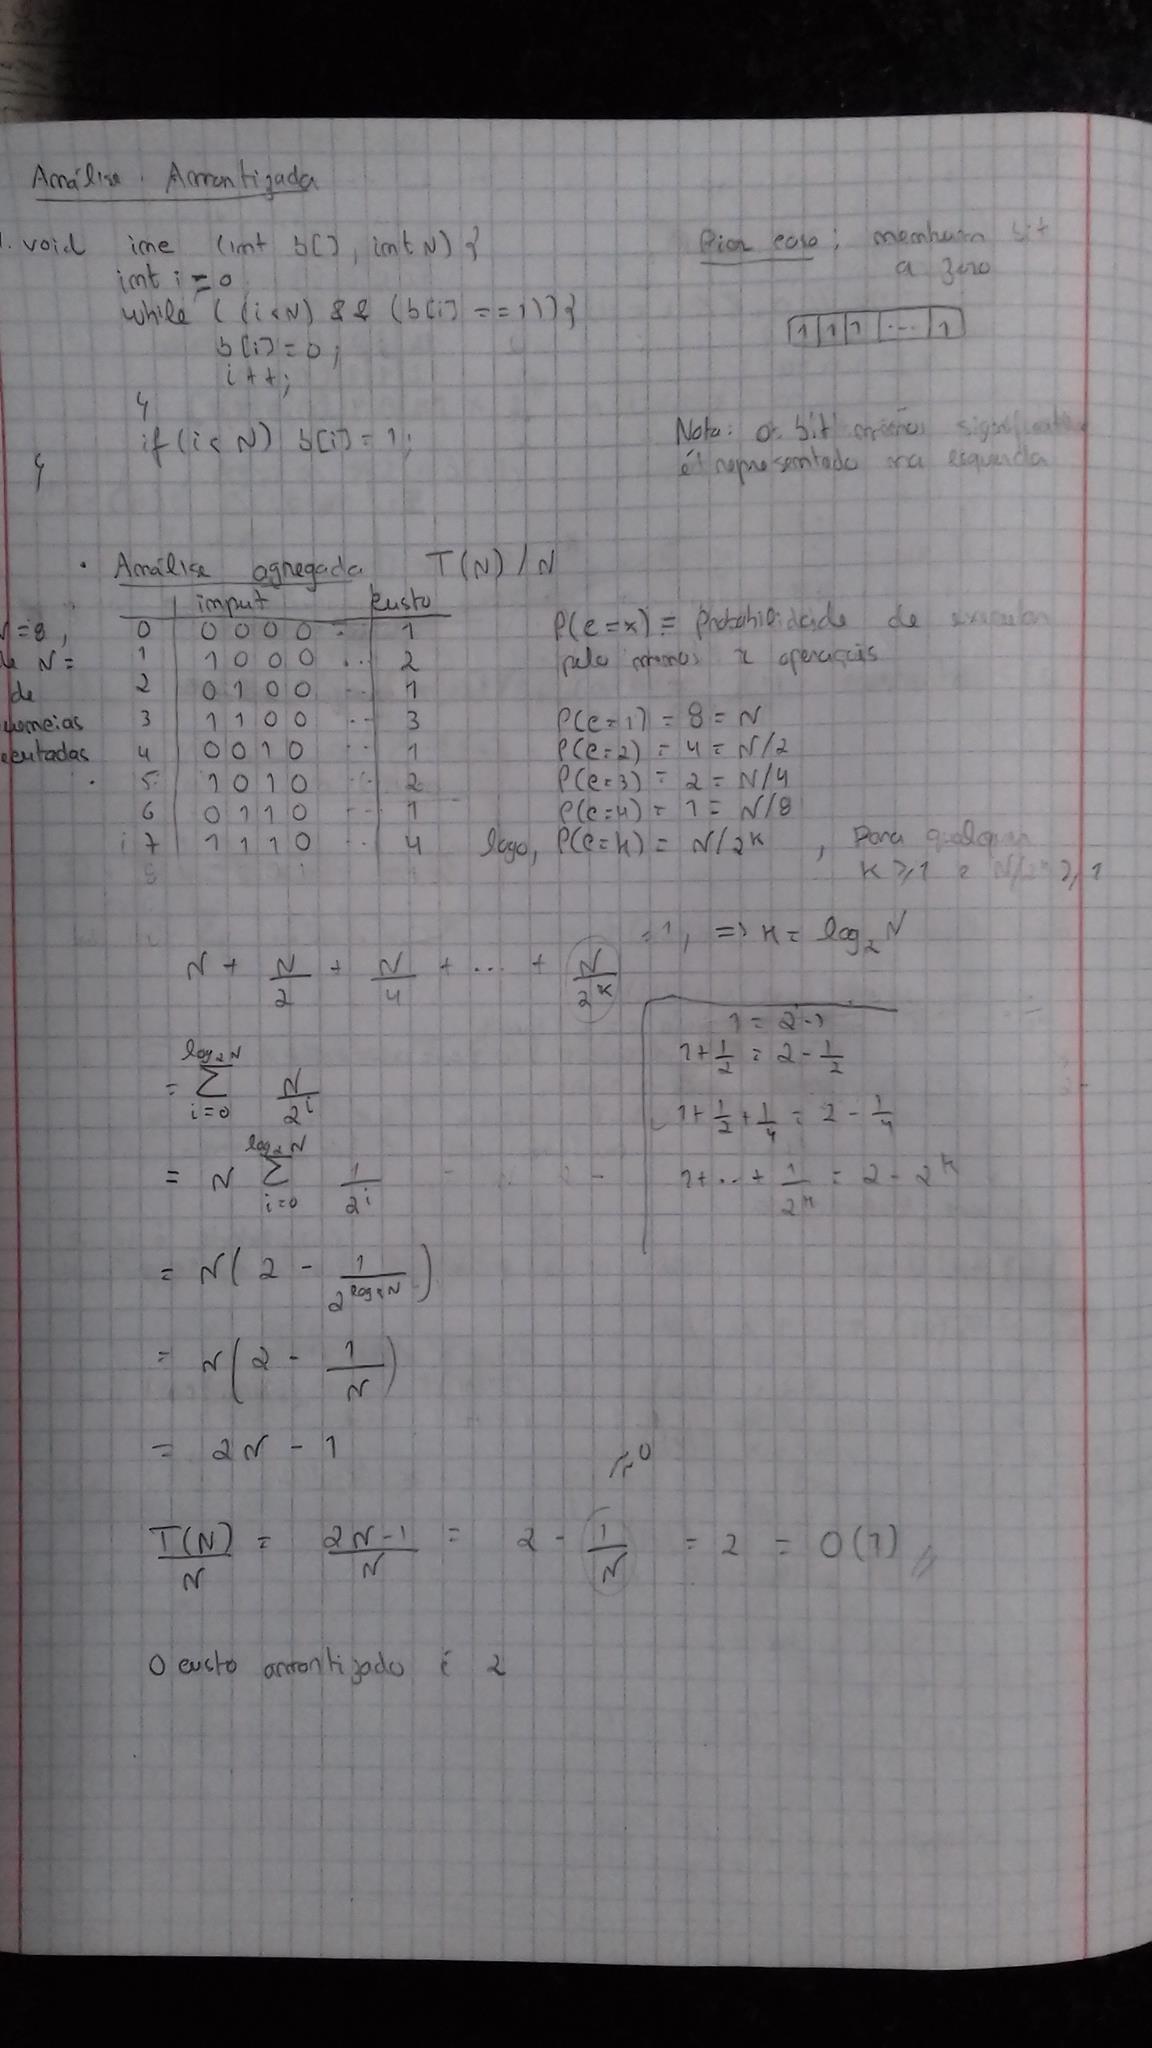 Análise Amortizada
1. void inc (int b[], int N) {
int i = 0
while ((i < N) && (b[i] == 1)) {
b[i] = 0;
i++;
}
if (i < N) b[i] = 1;
}
Pior caso: nenhum bit
a zero
1 1 1 ... 1
Nota: o bit menos significativo
é representado na esquerda
Análise agregada T(N)/N
input custo
0 0 0 0 0 .. 1
1 1 0 0 0 .. 2
2 0 1 0 0 .. 1
3 1 1 0 0 .. 3
4 0 0 1 0 .. 1
5 1 0 1 0 .. 2
6 0 1 1 0 .. 1
7 1 1 1 0 .. 4
8
=8,
N =
de
P(c=x) = Probabilidade de executar
pelo menos x operações
P(c=1) = 8 = N
P(c=2) = 4 = N/2
P(c=3) = 2 = N/4
P(c=4) = 1 = N/8
logo, P(c=k) = N/2^k , para qualquer
k ≥ 1 e N/2^k ≥ 1
N + N/2 + N/4 + ... + N/2^k = 1, => k = log₂ N
= Σ_{i=0}^{log₂N} N/2^i
= N Σ_{i=0}^{log₂N} 1/2^i
= N(2 - 1/2^{log₂N})
= N(2 - 1/N)
= 2N - 1
1 = 2-1
1 + 1/2 = 2 - 1/2
1 + 1/2 + 1/4 = 2 - 1/4
1 + .. + 1/2^k = 2 - 2^k
≈0
T(N)/N = 2N-1/N = 2 - 1/N = 2 = O(1)//
O custo amortizado é 2